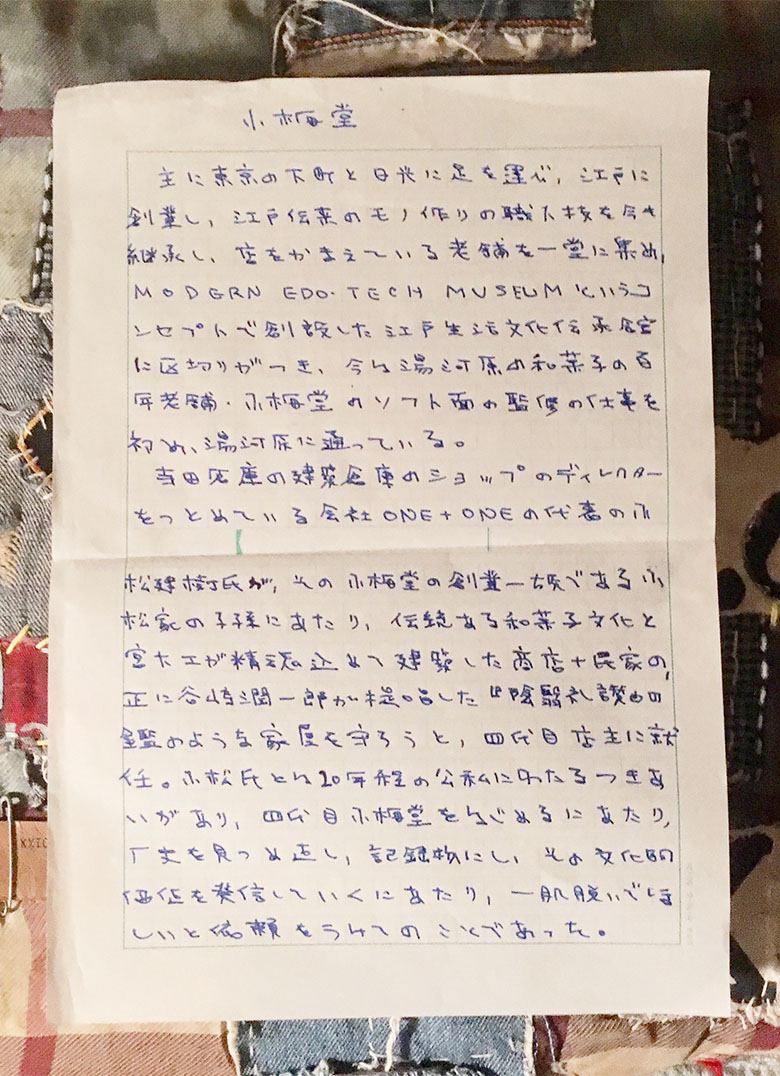 小梅堂
主に東京の下町と日光に足を運び、江戸に
創業し、江戸伝来のモノ作りの職人技を今も
継承し、店をかまえている老舗を一堂に集め、
MODERN EDO・TECH MUSEUMというコ
ンセプトで創設した江戸生活文化伝承館
に区切りがつき、今は湯河原の和菓子の百
年老舗・小梅堂のソフト面の監修の仕事を
初め、湯河原に通っている。
寺田倉庫の建築倉庫のショップのディレクター
をつとめている会社ONE+ONEの代表の小
松建樹氏が、その小梅堂の創業一族である小
松家の子孫にあたり、伝統ある和菓子文化と
宮大工が精魂込めて建築した商店+民家の、
正に谷崎潤一郎が提唱した『陰翳礼讃』の
鑑のような家屋を守ろうと、四代目店主に就
任。小松氏とは20年程の公私にわたるつきあ
いがあり、四代目小梅堂をはじめるにあたり、
歴史を見つめ直し、記録物にし、その文化的
価値を発信していくにあたり、一肌脱いでほ
しいと依頼をうけてのことであった。